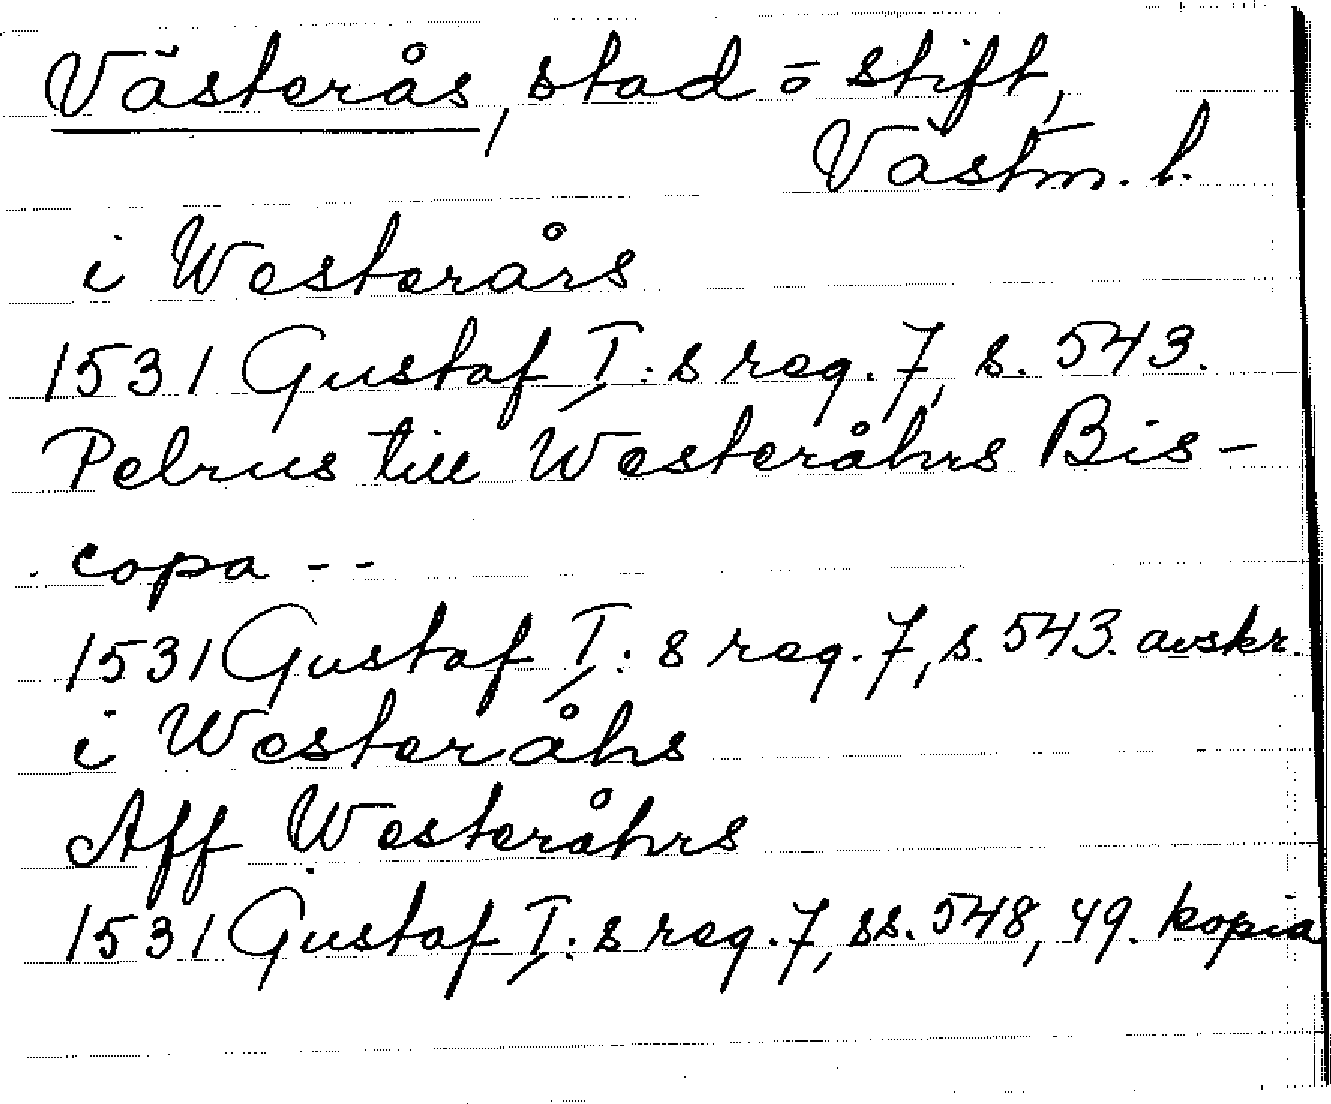 Västerås, stad o stift,
Västm. l.
i Westerårs
1531 Gustaf I:s reg. 7, s. 543.
Petrus till Westeråhrs Bis-
copa --
1531 Gustaf I:s reg. 7, s. 543. avskr.
i Westeråhs
Aff Westeråhrs
1531 Gustaf I:s reg. 7, ss. 548, 49. kopia